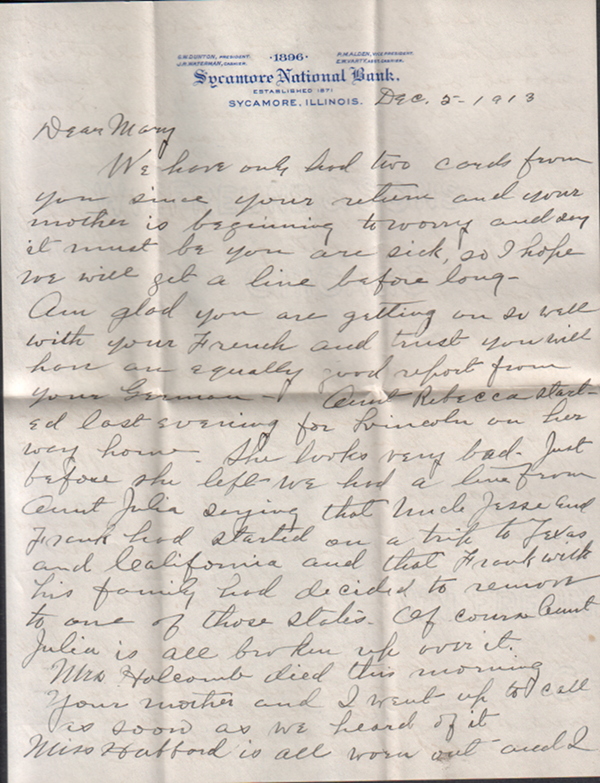 G.W. DUNTON, PRESIDENT. ·1896· P.M. ALDEN, VICE PRESIDENT.
J.R. WATERMAN, CASHIER. ASST. CASHIER.
Sycamore National Bank.
ESTABLISHED 1871
SYCAMORE, ILLINOIS. Dec. 5-1913
Dear Mary
We have only had two cards from
you since your return and your
mother is beginning to worry and say
it must be you are sick, so I hope
we will get a line before long-
Am glad you are getting on so well
with your French and trust you will
have an equally good report from
your German- Aunt Rebecca start-
ed last evening for Lincoln on her
way home. She looks very bad. Just
before she left we had a line from
Aunt Julia saying that Uncle Jesse and
Frank had started on a trip to Texas
and California and that Frank with
his family had decided to remove
to one of those states. Of course Aunt
Julia is all broken up over it.
Mrs Holcomb died this morning
Your mother and I went up to call
as soon as we heard of it
Miss is all worn out and I